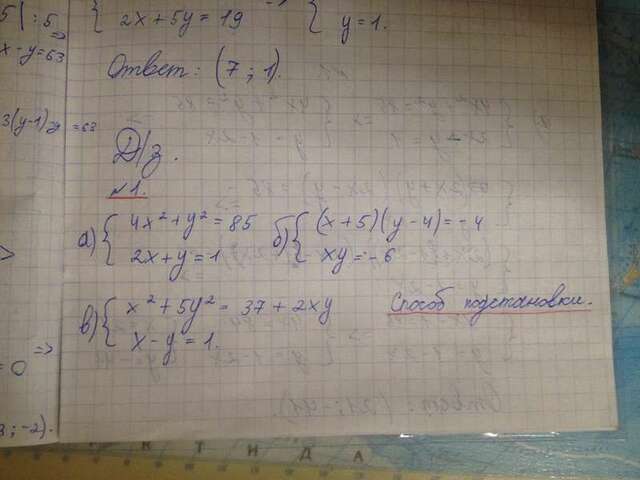 5| : 5
x - y = 63
3(y-1)y = 63
= 0
; -2).
{ 2x + 5y = 19
{ y = 1.
Ответ: (7 ; 1).
Д/з.
№1.
а) { 4x² + y² = 85
2x + y = 1
б) { (x + 5)(y - 4) = -4
xy = -6
в) { x² + 5y² = 37 + 2xy
x - y = 1.
Способ подстановки.